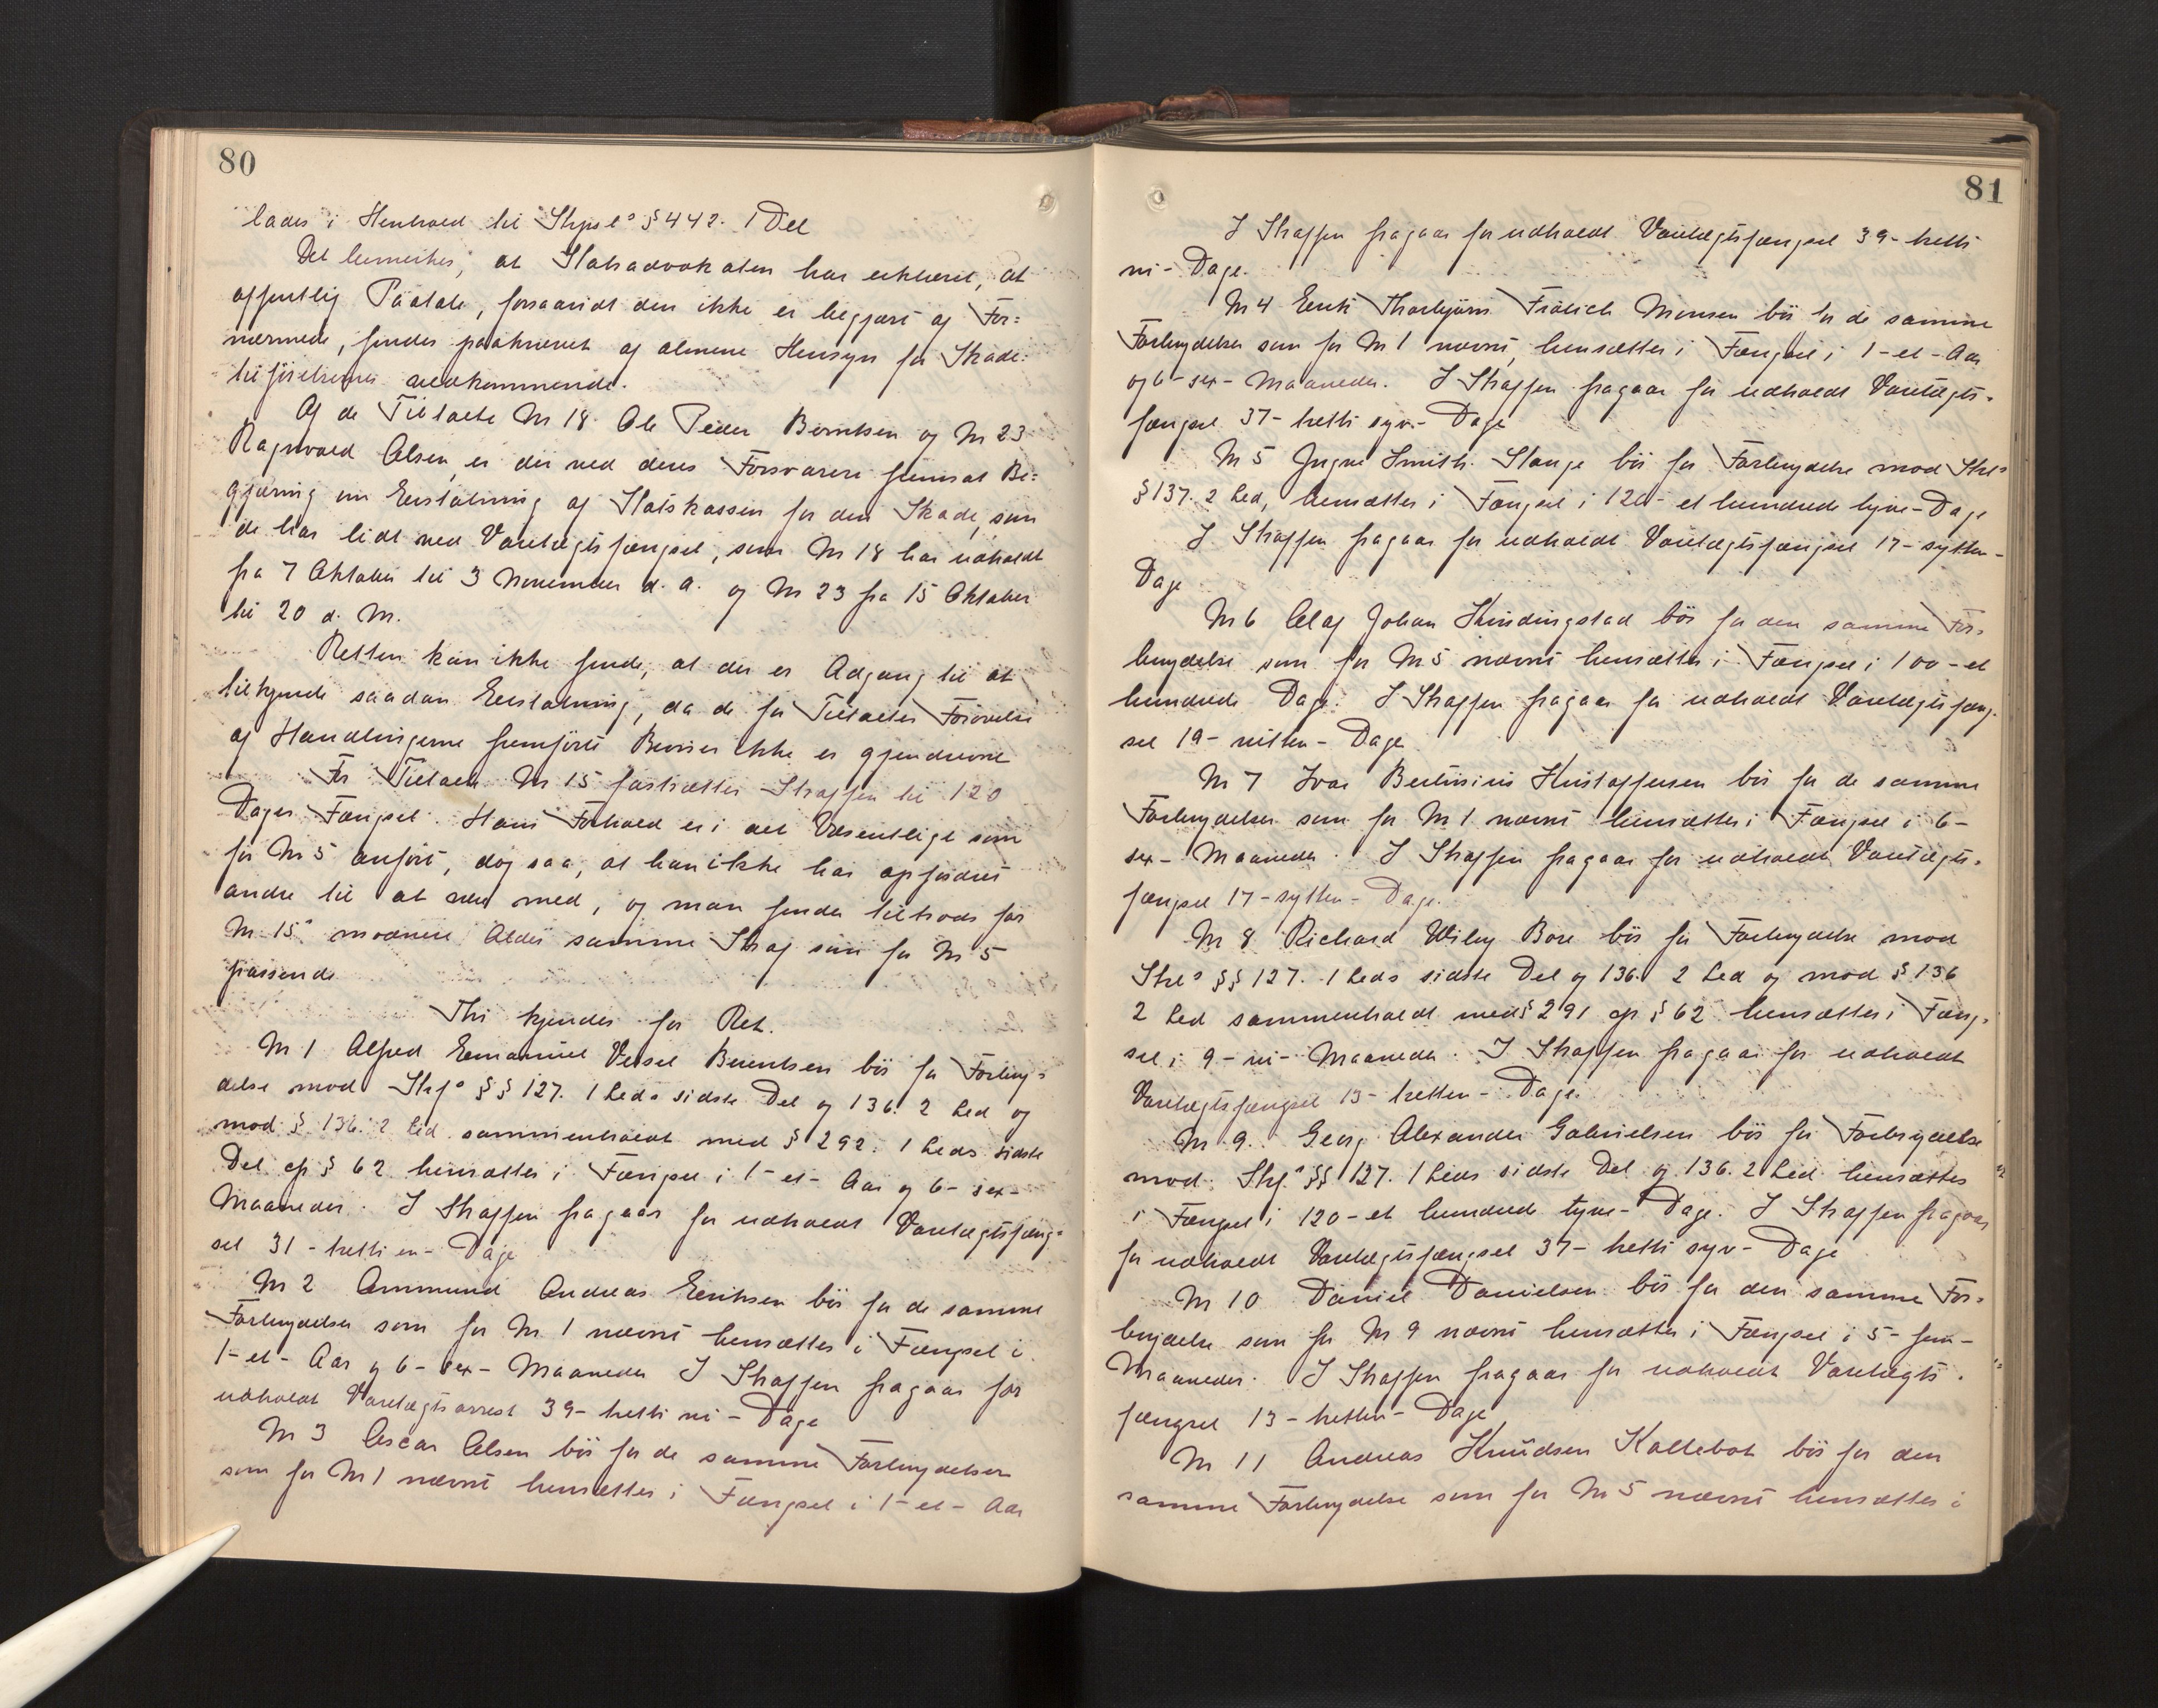 80
lades i Henhold til Strpsl's § 442. 1 Del
Det bemerkes, at Statsadvokaten har erklæret, at
offentlig Paatale, forsaavidt den ikke er begjært af For=
nærmede, findes paakrævet af almene Hensyn for Skade=
tilføielsernes vedkommende.
Af de Tiltalte No 18 Ole Peder Berntsen og No 23
Ragnvald Olsen er der ved deres Forsvarere fremsat Be=
gjæring om Erstatning af Statskassen for den Skade, som
de har lidt ved Varetægtsfængsel, som No 18 har udholdt
fra 7 Oktober til 3 November d. A. og No 23 fra 15 Oktober
til 20 d. M.
Retten kan ikke finde, at der er Adgang til at
tilkjende saadan Erstatning, da de for Tiltaltes Forøvelse
af Handlingerne fremførte Beviser ikke er gjendrevne
For Tiltalte No 15 fastsættes Straffen til 120
Dages Fængsel. Hans Forhold er i det Væsentlige som
for No 5 anført, dog saa, at han ikke har opfordret
andre til at være med, og man finder tiltrods for
No 15's modnere Alder samme Straf som for No 5
passende
Thi kjendes for Ret.
No 1 Alfred Emanuel Vessel Berentsen bør for Forbry=
delse mod Strf's §§ 127. 1 Leds sidste Del og 136. 2 Led og
mod § 136. 2 Led sammenholdt med § 292. 1 Leds sidste
Del cfr § 62 hensættes i Fængsel i 1 - et - Aar og 6 - sex -
Maaneder. I Straffen fragaar for udholdt Varetægtsfæng=
sel 31 - tretti en - Dage
No 2 Ammund Andreas Eriksen bør for de samme
Forbrydelser som for No 1 nævnt hensættes i Fængsel i
1 - et - Aar og 6 - sex - Maaneder I Straffen fragaar for
udholdt Varetægtsarrest 39 - tretti ni - Dage
No 3 Oscar Olsen bør for de samme Forbrydelser
som for No 1 nævnt hensættes i Fængsel i 1 - et - Aar
81
I Straffen fragaar for udholdt Varetægtsfængsel 39 - tretti
ni - Dage.
No 4 Erik Thorbjørn Frölich Monsen bør for de samme
Forbrydelser som for No 1 nævnt, hensættes i Fængsel i 1 - et - Aar
og 6 - sex - Maaneder. I Straffen fragaar for udholdt Varetægts=
fængsel 37 - tretti syv - Dage
No 5 Yngve Smith Stange bør for Forbrydelse mod Strl's
§ 137. 2 Led, hensættes i Fængsel i 120 - et hundrede tyve - Dage
I Straffen fragaar for udholdt Varetægtsfængsel 17 - sytten -
Dage
No 6 Olaf Johan Kindingstad bør for den samme For=
brydelse som for No 5 nævnt hensættes i Fængsel i 100 - et
hundrede Dage. I Straffen fragaar for udholdt Varetægtsfæng=
sel 19 - nitten - Dage
No 7 Ivar Bertinius Kristoffersen bør for de samme
Forbrydelser som for No 1 nævnt hensættes i Fængsel i 6 -
sex - Maaneder. I Straffen fragaar for udholdt Varetægts=
fængsel 17 - sytten - Dage.
No 8 Richard Wiley Bore bør for Forbrydelse mod
Strl's §§ 127. 1 Leds sidste Del og 136. 2 Led og mod § 136
2 Led sammenholdt med § 291 cfr § 62 hensættes i Fæng=
sel i 9 - ni - Maaneder. I Straffen fragaar for udholdt
Varetægtsfængsel 13 - tretten - Dage.
No 9. Georg Alexander Gabrielsen bør for Forbrydelse
mod Strf's §§ 127. 1 Leds sidste Del og 136. 2 Led hensættes
i Fængsel i 120 - et hundred tyve - Dage. I Straffen fragaar
for udholdt Varetægtsfængsel 37 - tretti syv - Dage
No 10 Daniel Danielsen bør for den samme For=
brydelse som for No 9 nævnt hensættes i Fængsel i 5 - fem -
Maaneder. I Straffen fragaar for udholdt Varetægts=
fængsel 13 - tretten - Dage
No 11 Andreas Knudsen Kallebot bør for den
samme Forbrydelse som for No 5 nævnt hensættes i